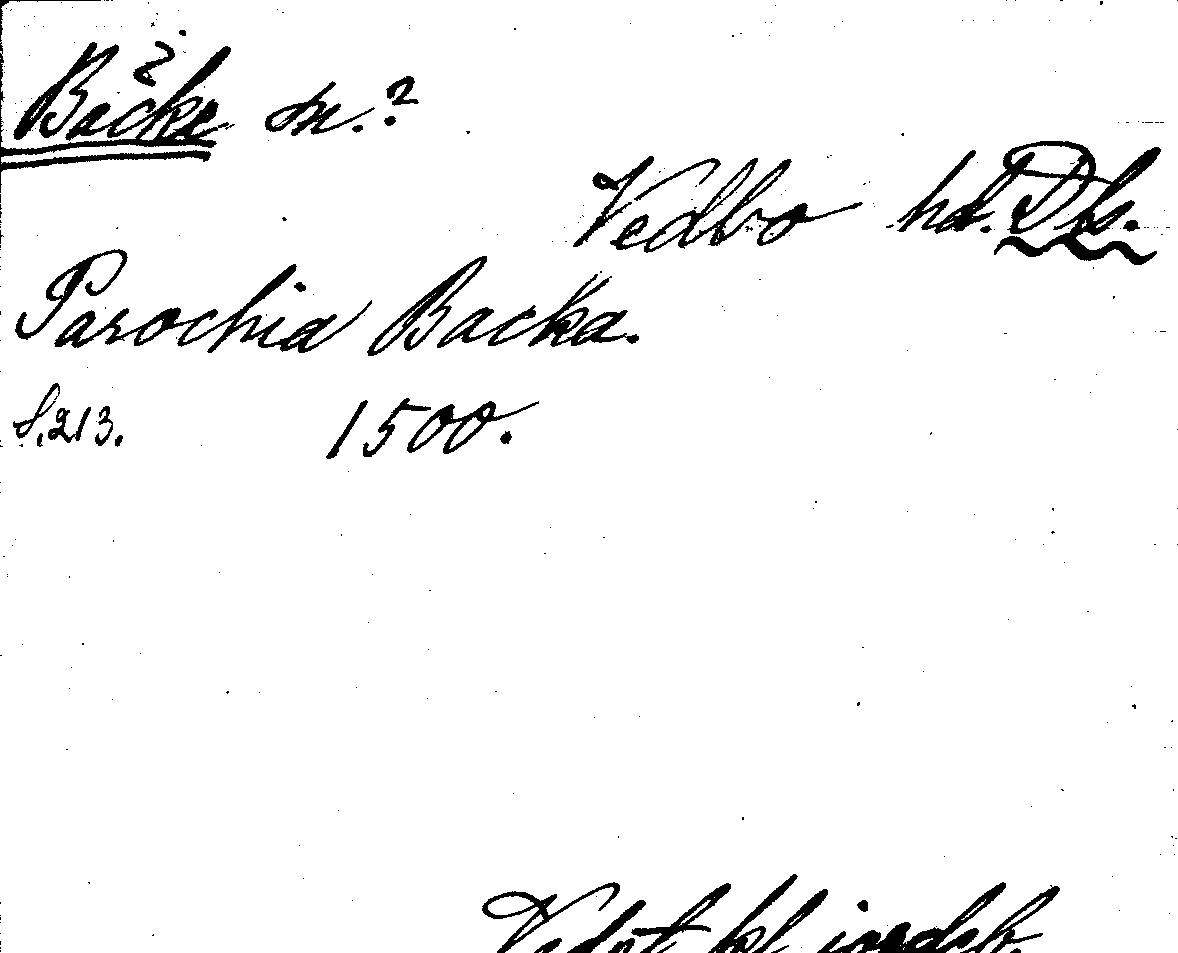 Bäcke sn.?
Vedbo hd. Dls.
Parochia Backa.
S.213. 1500.
Vedöt kl. jordeb.